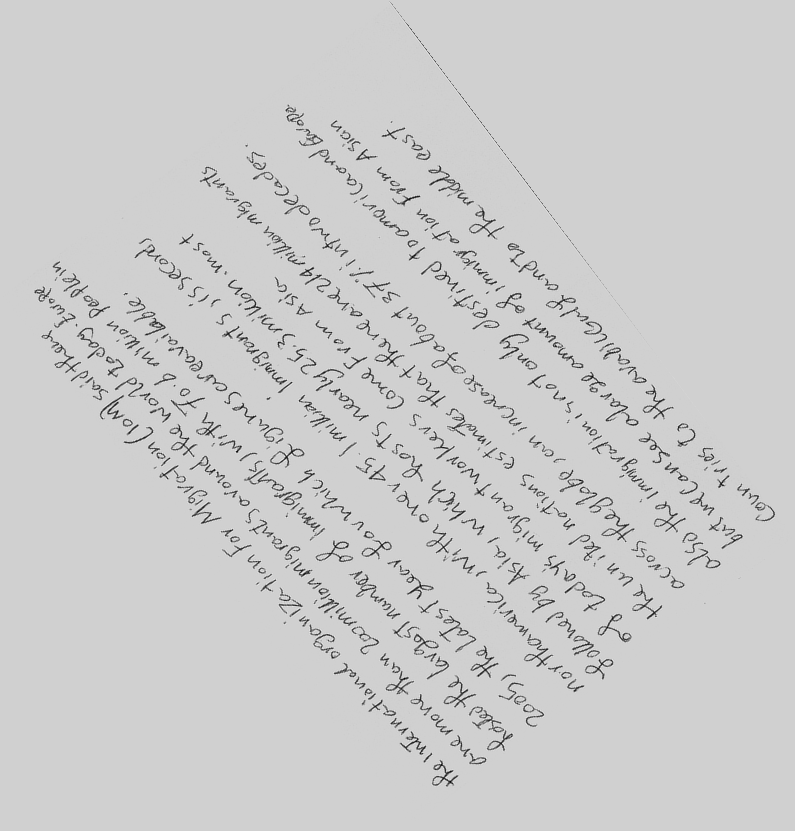 the international organization For Migration (IOM) said there
are more than 200 million migrants around the world today. Europe
hosted the largest number of immigrants, with 70.6 million people in
2005, the latest year for which figures are available.
north america, with over 45.1 million immigrants, is second,
followed by Asia, which hosts nearly 25.3 million. most
of todays migrant workers come from Asia
the united nations estimates that there are 214 million migrants
across the globe, an increase of about 37% in two decades.
also the immigration is not only destined to america and Europe
but we can see a large amount of immigration from Asian
Countries to the availibady and to the middle east.